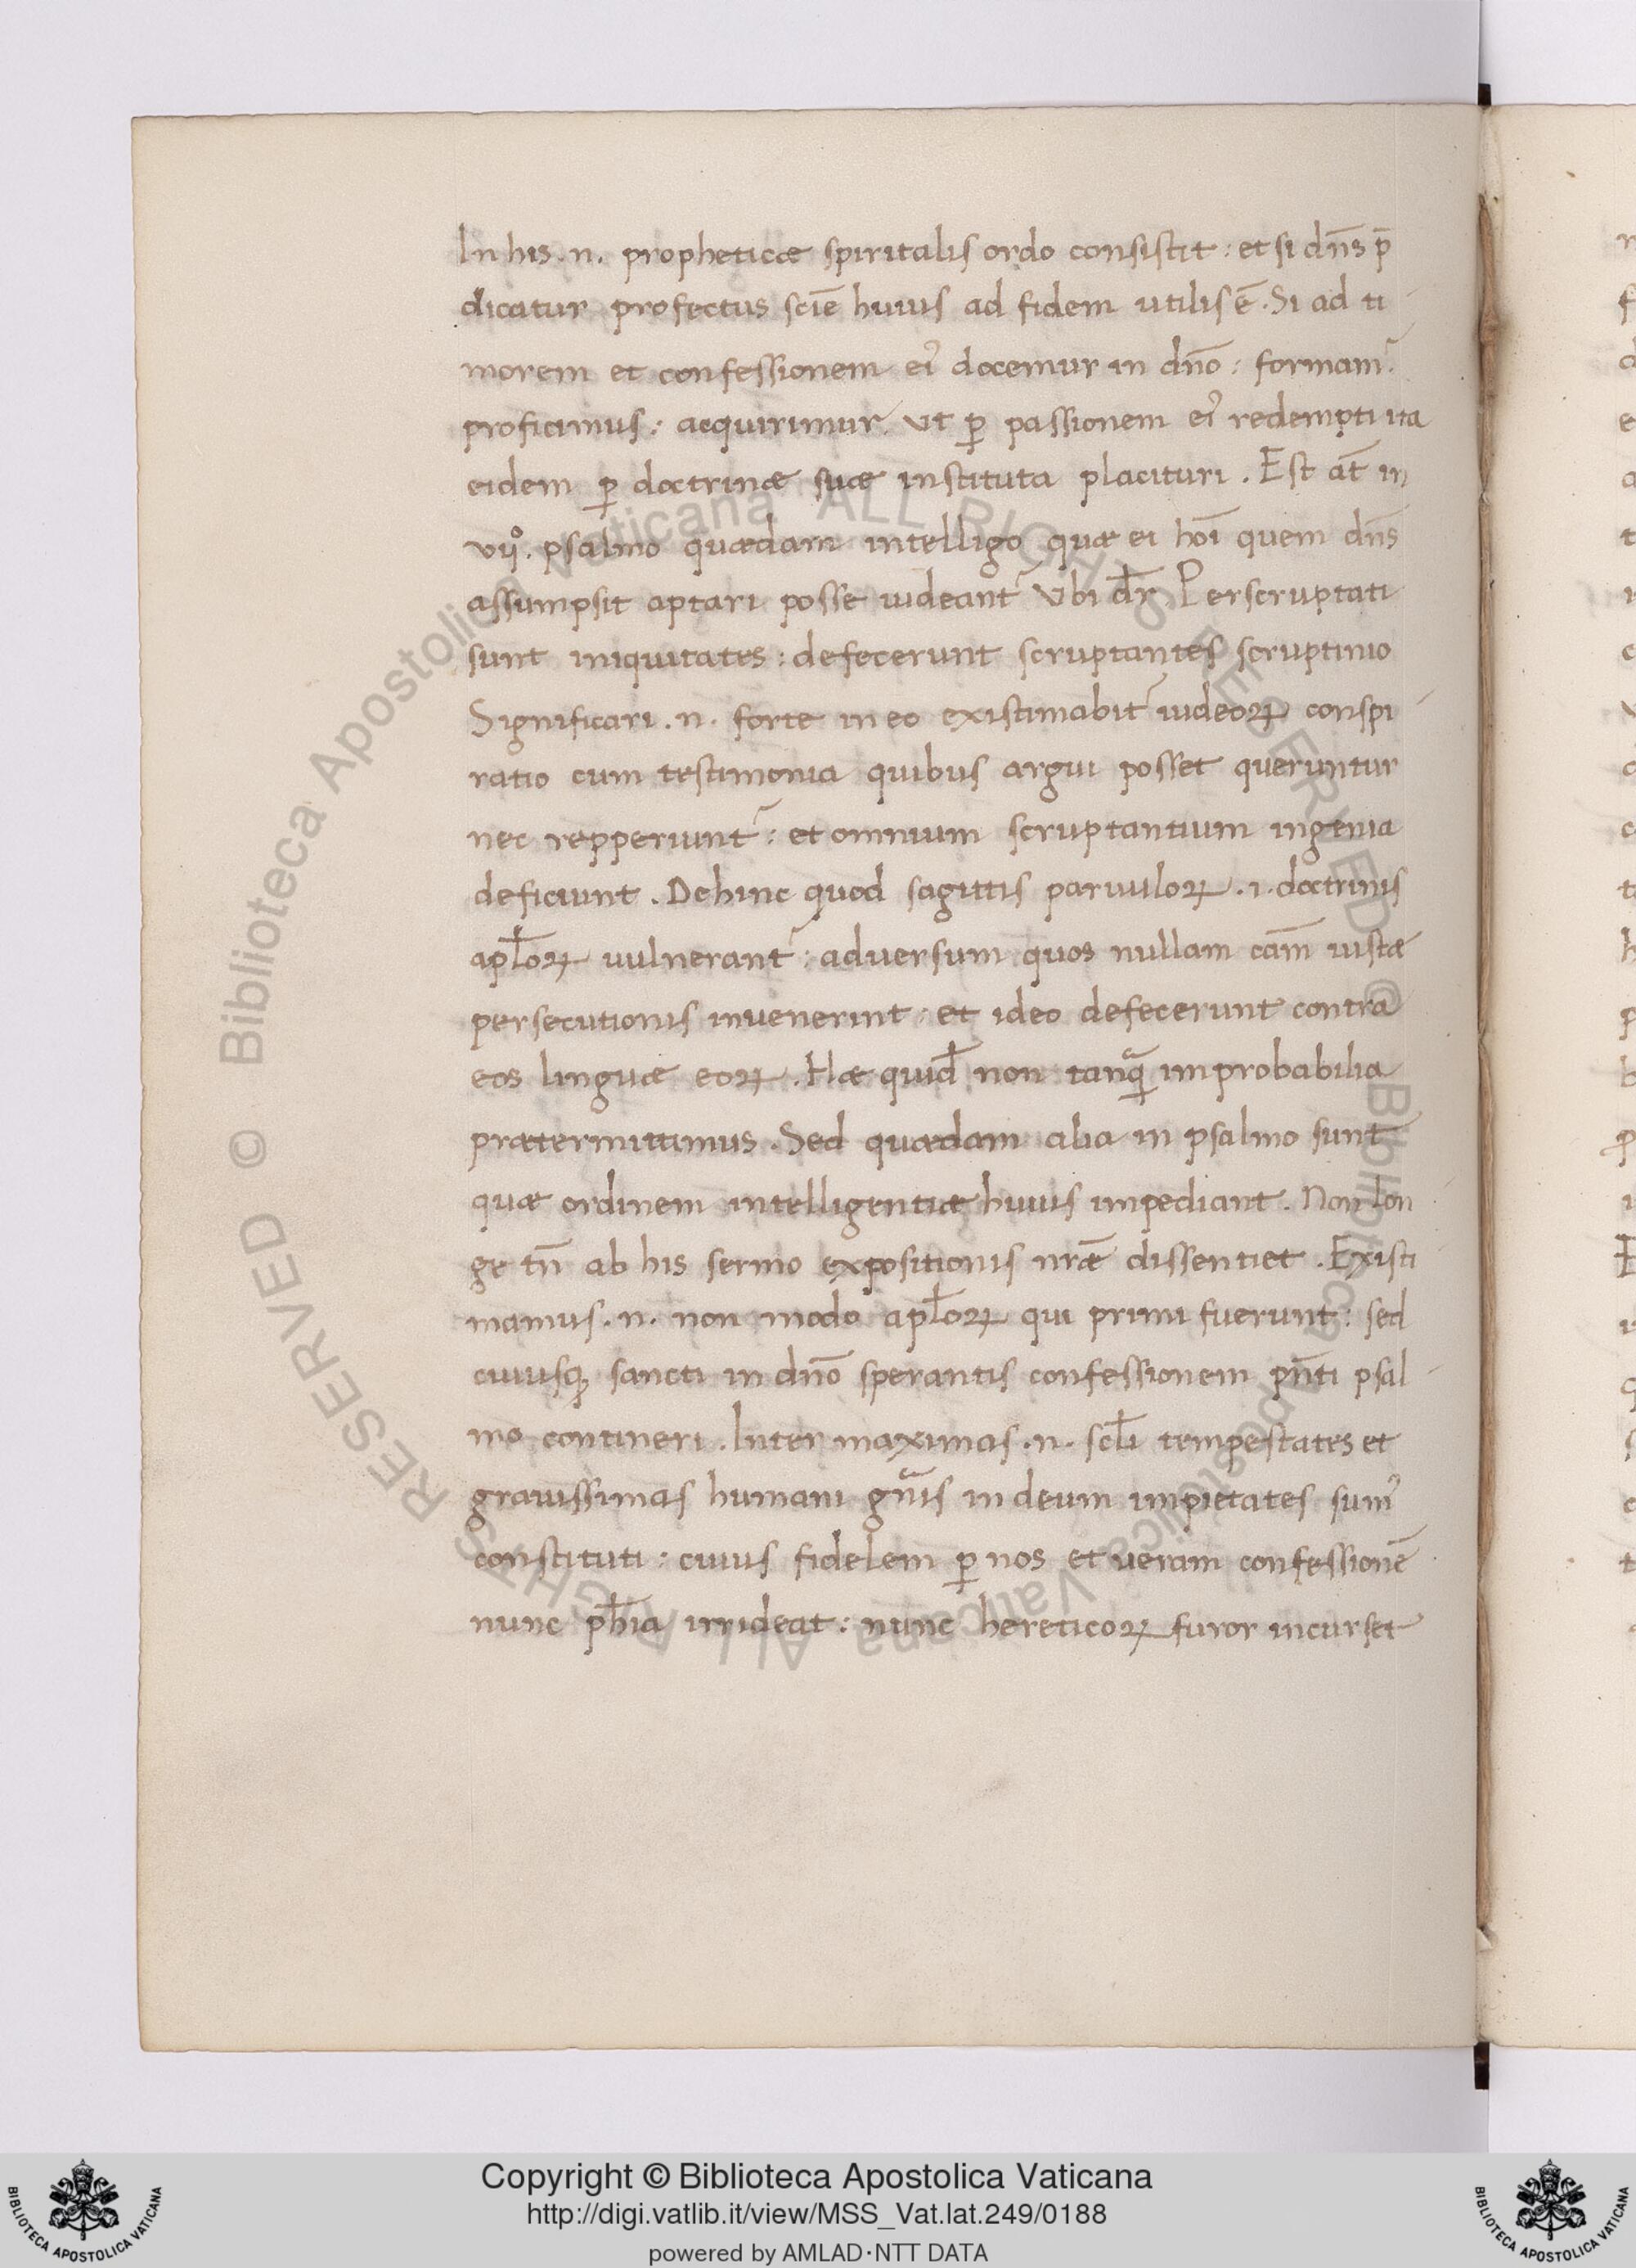 In his .n. propheticæ spiritalis ordo consistit : et si dn̄s p̄
dicatur profectus sciē huius ad fidem utilis ē. Si ad ti-
morem et confessionem ei᾽ docemur in dn̄o : formam᾽.
proficimus : acquirimur. Vt ꝑ passionem ei᾽ redempti ita
eidem ꝑ doctrinæ suæ instituta placituri . Est āt in
vijº. psalmo quædam intelligo quæ ei hōi quem dn̄s
assumpsit aptari posse uideant᾽ Vbi dr̄. Perscruptati
sunt iniquitates : defecerunt scruptantes scruptinio
Significari .n. forte in eo existimabit᾽ iudeoꝝ conspi-
ratio cum testimonia quibus argui posset queruntur
nec repperiunt᾽ : et omnium scruptantium ingenia
deficiunt . Dehinc quod sagittis paruuloꝝ .i. doctrinis
apl̄oꝝ uulnerant᾽ : aduersum quos nullam cām iustæ
persecutionis inuenerint : et ideo defecerunt contra
eos linguæ eoꝝ . Hæ quid̄ non tanꝗ improbabilia
prætermittimus . Sed quædam alia in psalmo sunt
quæ ordinem intelligentiæ huius impediant . Non lon-
ge tn̄ ab his sermo expositionis nr̄æ dissentiet . Existi
mamus .n. non modo apl̄oꝝ qui primi fuerunt : sed
cuiusq; sancti in dn̄o sperantis confessionem pn̄ti psal-
mo contineri . Inter maximas .n. scl̄i tempestates et
grauissimas humani gn̄is in deum impietates sum᾽
constituti : cuius fidelem ꝑ nos et ueram confessionē
nunc ph̄ia irrideat : nunc hereticoꝝ furor incurset
Biblioteca Apostolica Vaticana ALL RIGHTS RESERVED © Biblioteca Apostolica Vaticana ALL RIGHTS RESERVED ©
Copyright © Biblioteca Apostolica Vaticana
http://digi.vatlib.it/view/MSS_Vat.lat.249/0188
powered by AMLAD·NTT DATA
BIBLIOTECA APOSTOLICA VATICANA
BIBLIOTECA APOSTOLICA VATICANA